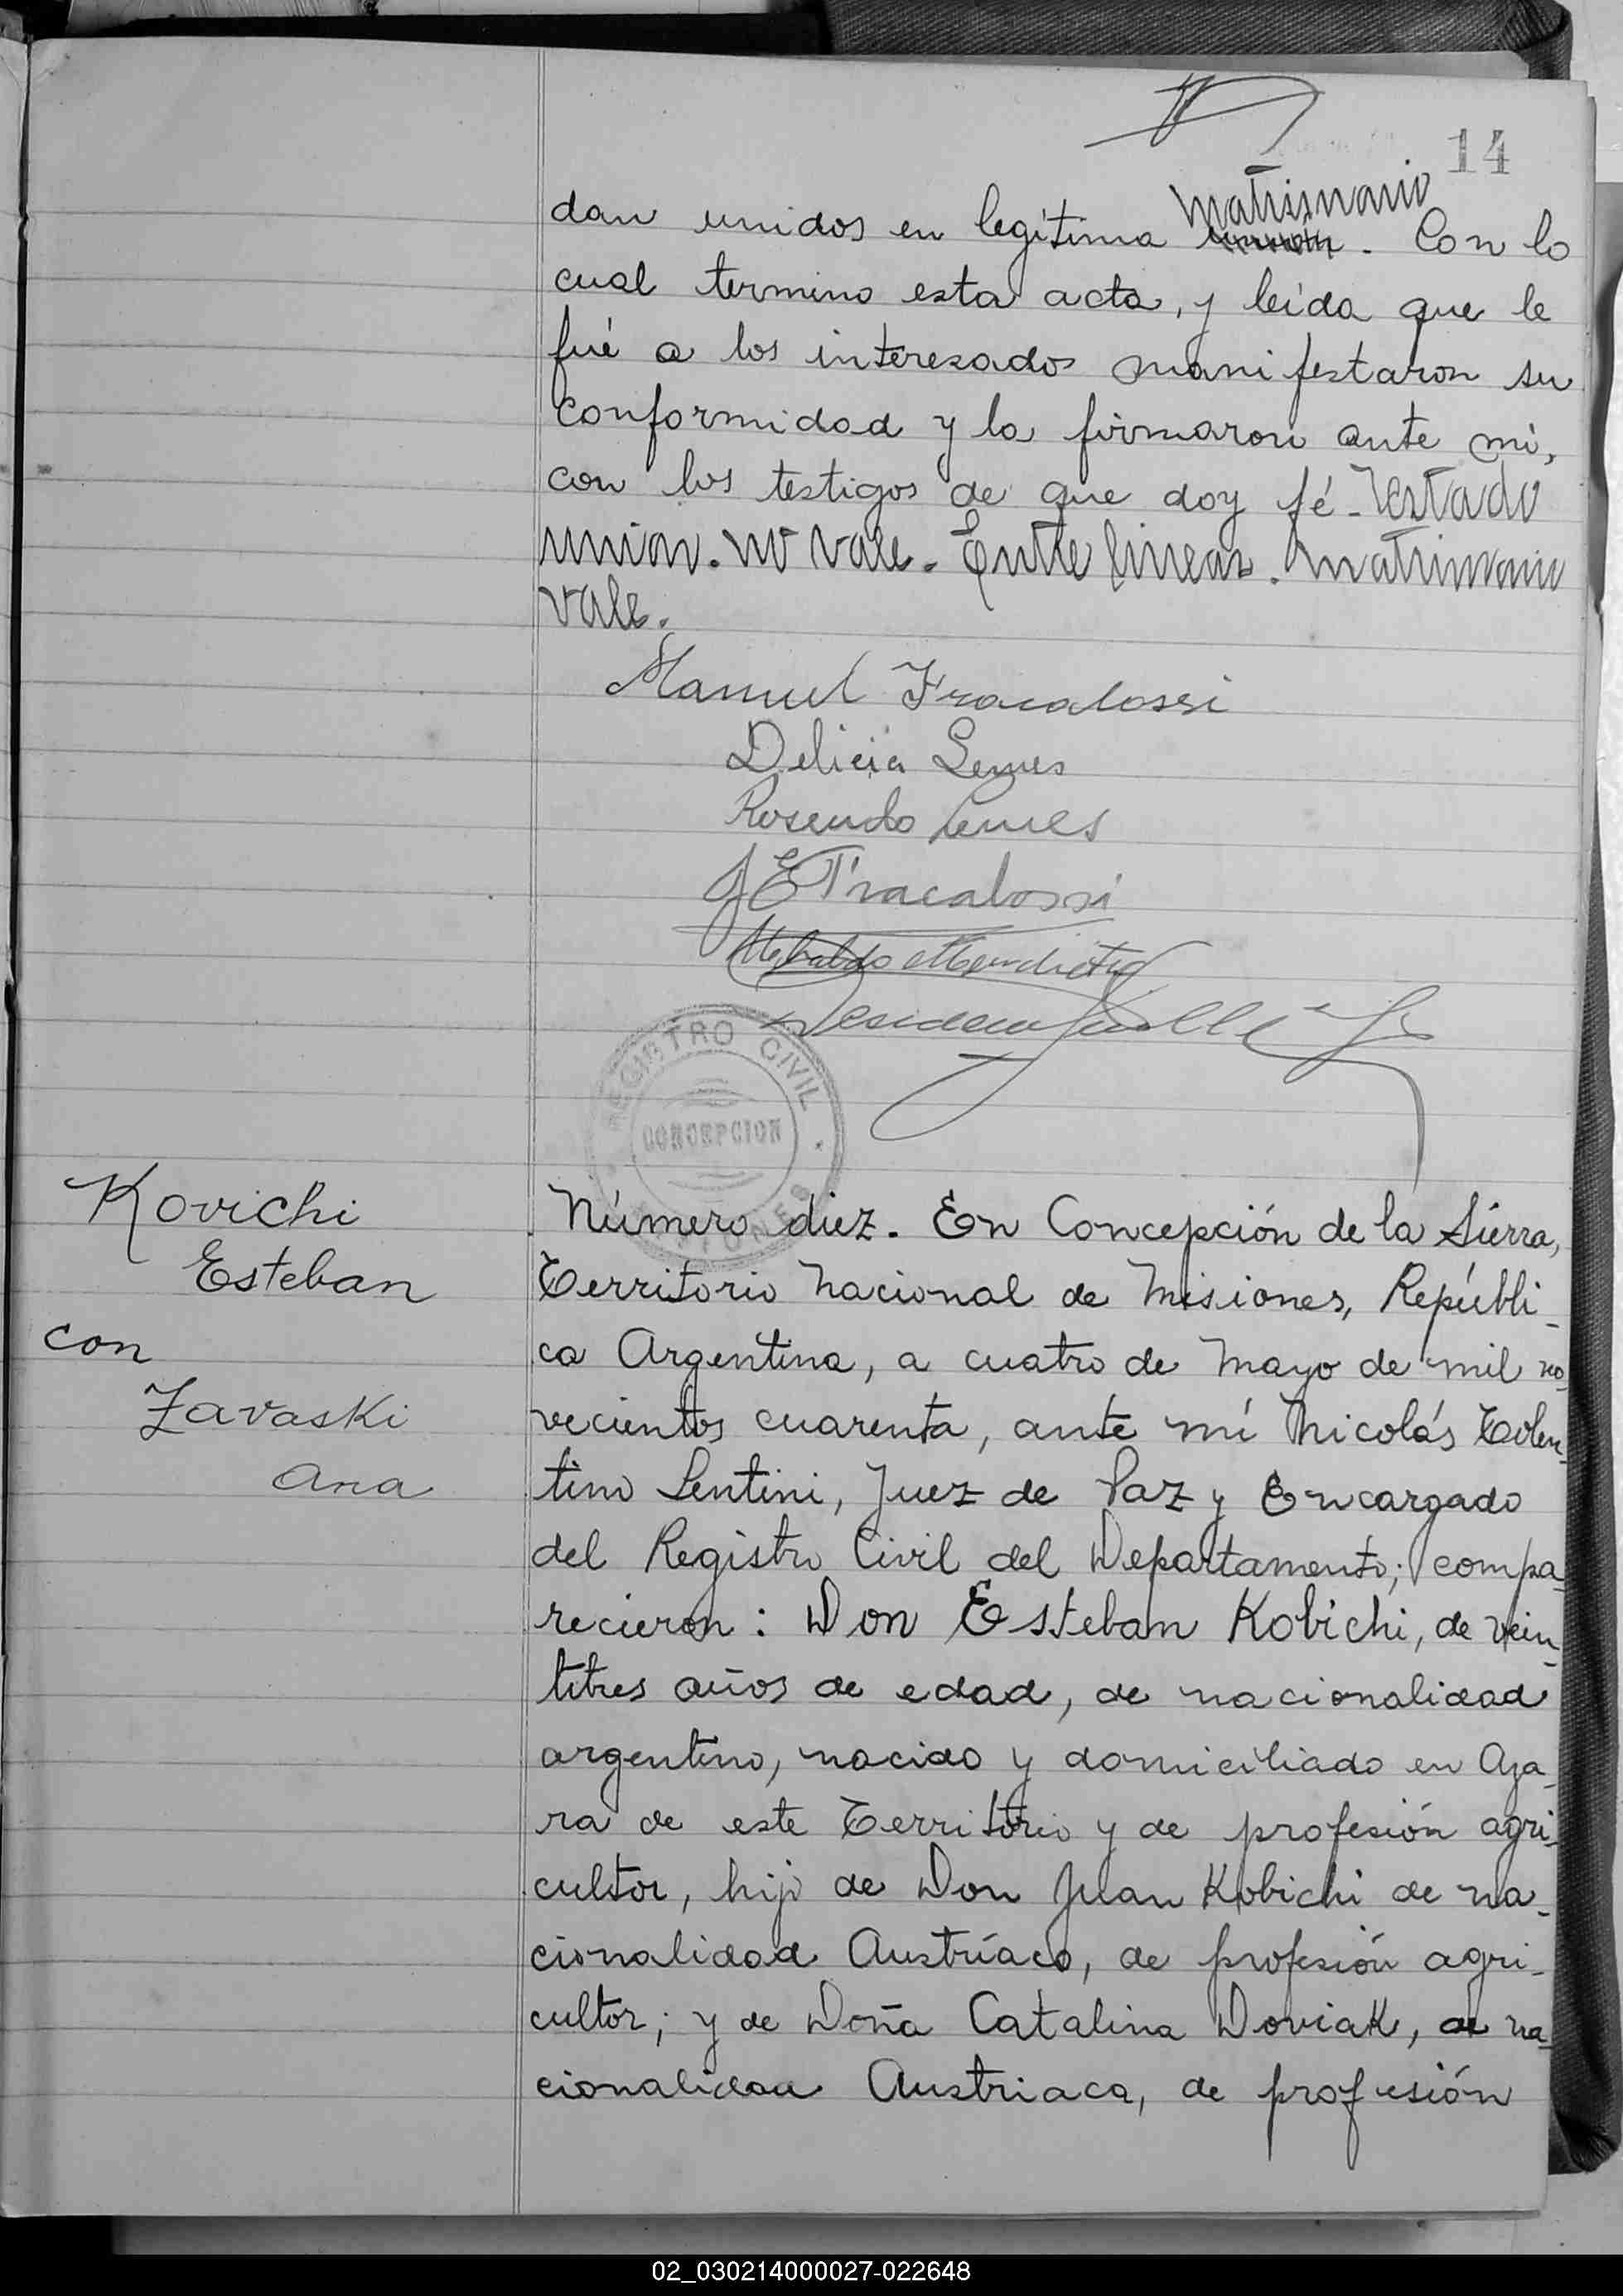 14
matrimonio
dan unidos en legítima unión. Con lo
cual termino esta acta, y leída que le
fué a los interesados manifestaron su
conformidad y la firmaron ante mi,
con los testigos de que doy fé - Testado
union. no vale. Entre lineas. matrimonio
vale.
Manuel Fracalossi
Delicia Lemes
Rosendo Lemes
J E Fracalossi
Mendieta
REGISTRO CIVIL
CONCEPCION
MISIONES
Kovichi
Esteban
con
Zavaski
Ana
Número diez. En Concepción de la Sierra,
Territorio Nacional de Misiones, Repúbli-
ca Argentina, a cuatro de Mayo de mil no-
vecientos cuarenta, ante mí Nicolás Tolen-
tino Lentini, Juez de Paz y Encargado
del Registro Civil del Departamento; compa-
recieron: Don Esteban Kobichi, de vein-
titres años de edad, de nacionalidad
argentino, nacido y domiciliado en Aza-
ra de este Territorio y de profesión agri-
cultor, hijo de Don Juan Kobichi de na-
cionalidad Austríaco, de profesión agri-
cultor; y de Doña Catalina Doviak, de na-
cionalidad Austriaca, de profesión
02_030214000027-022648